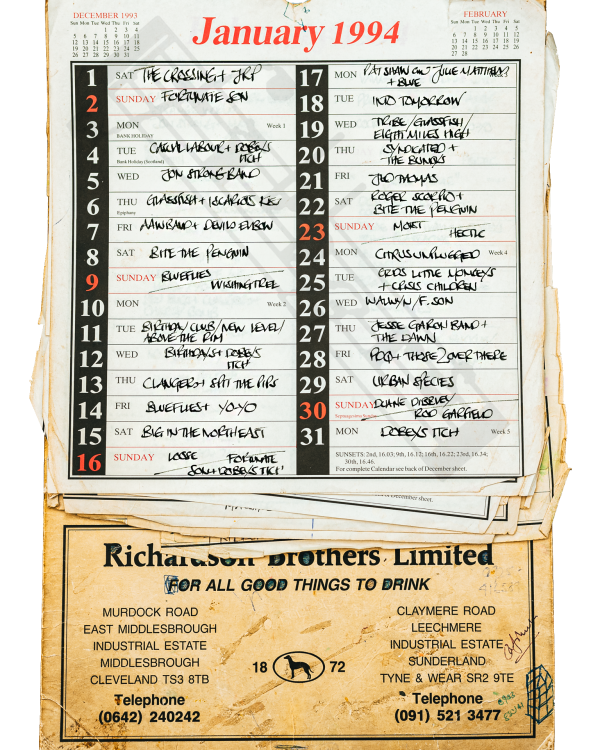 DECEMBER 1993
Sun Mon Tue Wed Thu Fri Sat
1 2 3 4
5 6 7 8 9 10 11
12 13 14 15 16 17 18
19 20 21 22 23 24 25
26 27 28 29 30 31
January 1994
FEBRUARY
Sun Mon Tue Wed Thu Fri Sat
1 2 3 4 5
6 7 8 9 10 11 12
13 14 15 16 17 18 19
20 21 22 23 24 25 26
27 28
1 SAT THE CROSSING + JRP
2 SUNDAY FORTUNATE SON
3 MON Week 1
BANK HOLIDAY
4 TUE CASUAL LABOUR + DOBEYS
Bank Holiday (Scotland) ITCH
5 WED JON STRONG BAND
6 THU GLASSFISH + ISCARIOTS KISS
Epiphany
7 FRI AAW BAND + DEVILS ELBOW
8 SAT BITE THE PENGUIN
9 SUNDAY BLUEFLIES
WISHING TREE
10 MON Week 2
11 TUE BIRTHDAY CLUB/NEW LEVEL/
ABOVE THE RIM
12 WED BIRTHDAYS + DOBEYS
ITCH
13 THU CLANGER + SPIT THE PIPS
14 FRI BLUEFLIES + YO-YO
15 SAT BIG IN THE NORTH EAST
16 SUNDAY LOOSE FORTUNATE
SON + DOBEYS ITCH
17 MON PAT SHAW GW JULIE MATTHEWS
+ BLUE
18 TUE INTO TOMORROW
19 WED TRIBE/GLASSFISH/
EIGHT MILES HIGH
20 THU SYNDICATED +
THE BUNGYS
21 FRI JLO THOMAS
22 SAT ROGER SCORPIO +
BITE THE PENGUIN
23 SUNDAY MOIST
HECTIC
24 MON CITRUS UNPLUGGED Week 4
25 TUE GROS LITTLE MONKEYS
+ CRISIS CHILDREN
26 WED WALWYN/F.SON
27 THU JESSE GARON BAND +
THE DAWN
28 FRI POCH + THOSE 2 OVER THERE
29 SAT URBAN SPECIES
30 SUNDAY DUANE DIBBLEY
Septuagesima Sunday ROD GARFIELD
31 MON DOBEYS ITCH Week 5
SUNSETS: 2nd, 16.03; 9th, 16.12; 16th, 16.22; 23rd, 16.34;
30th, 16.46.
For complete Calendar see back of December sheet.
December sheet.
Richardson Brothers Limited
FOR ALL GOOD THINGS TO DRINK
MURDOCK ROAD
EAST MIDDLESBROUGH
INDUSTRIAL ESTATE
MIDDLESBROUGH
CLEVELAND TS3 8TB
Telephone
(0642) 240242
18 72
CLAYMERE ROAD
LEECHMERE
INDUSTRIAL ESTATE
SUNDERLAND
TYNE & WEAR SR2 9TE
Telephone
(091) 521 3477